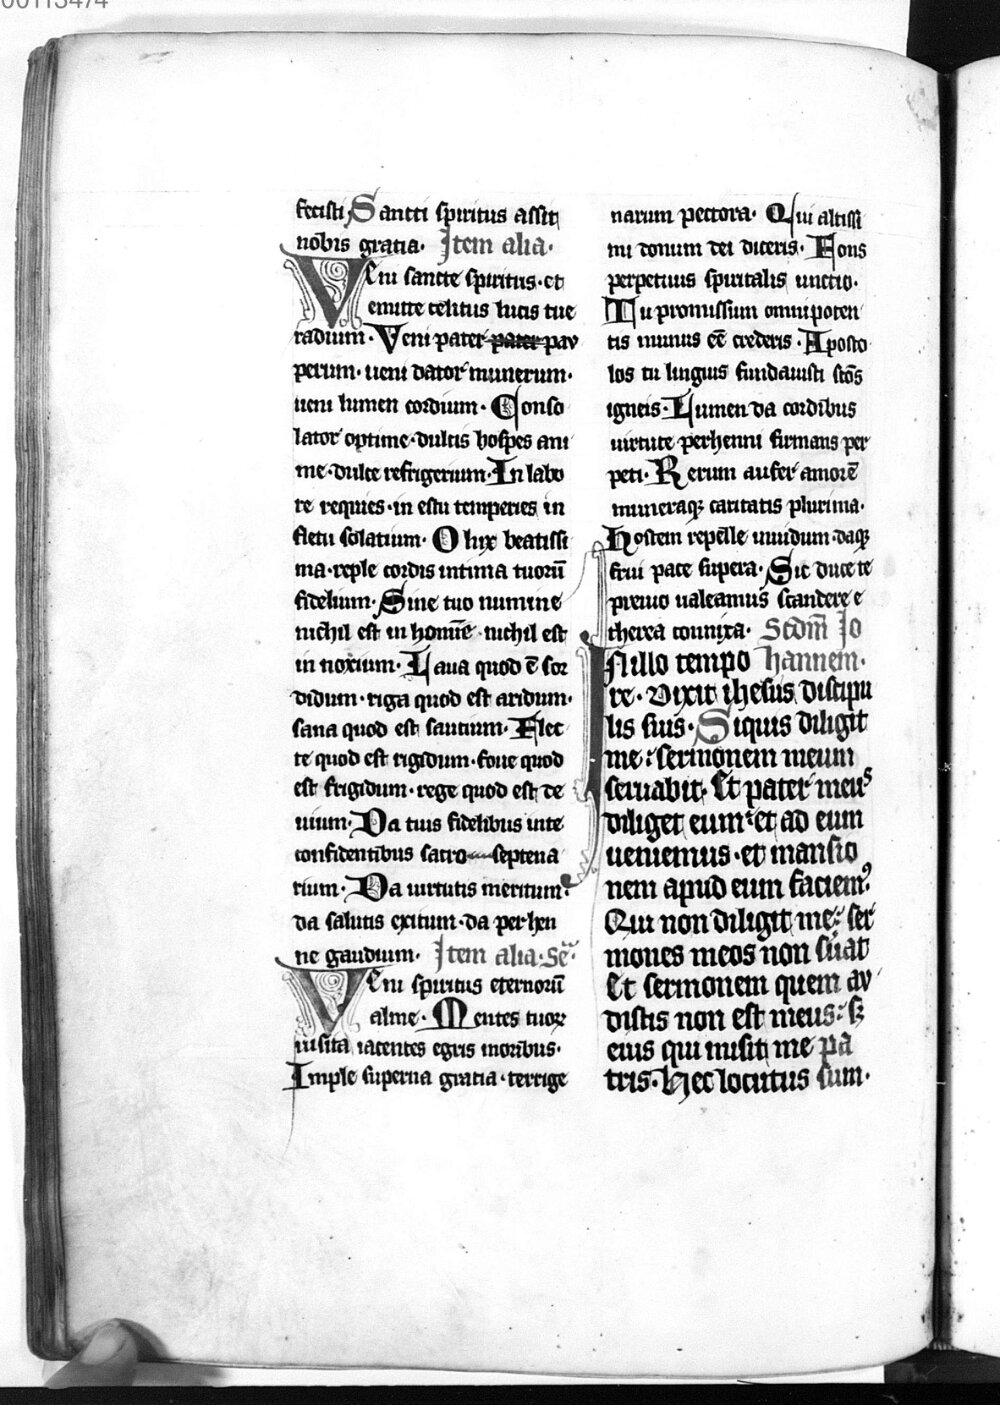 00113474
fecisti Sancti spiritus assit
nobis gratia. Item alia.
Veni sancte spiritus. et
emitte celitus lucis tue
radium. Veni pater pater pau
perum. ueni dator munerum.
ueni lumen cordium. Conso
lator optime. dulcis hospes ani
me. dulce refrigerium. In labo
re requies. in estu temperies in
fletu solatium. O lux beatissi
ma. reple cordis intima tuorū
fidelium. Sine tuo numine
nichil est in homīe. nichil est
in noxium. Laua quod ē sor
didum. riga quod est aridum.
sana quod est saucium. Flec
te quod est rigidum. foue quod
est frigidum. rege quod est de
uium. Da tuis fidelibus inte
confidentibus sacro septena
rium. Da uirtutis meritum.
da salutis exitum. da per hen
ne gaudium. Item alia. Se
Veni spiritus eternorū
alme. Mentes tuoꝝ
uisita iacentes egris moribus.
Imple superna gratia. terrige
narum pectora. Qui altissi
mi donum dei diceris. Fons
perpetuus spiritalis unctio.
Tu promissum omnipoten
tis munus eē crederis. Aposto
los tu linguis fundauisti scōs
igneis. Lumen da cordibus
uirtute perhenni firmans per
peti. Rerum aufer amorē
muneraqꝫ caritatis plurima.
Hostem repelle inuidum. daqꝫ
frui pace supera. Sic duce te
preuio ualeamus scandere e
therea connixa. Scdm̄ Jo
In illo tempo hannem.
re. Dixit ihesus discipu
lis suis. Siquis diligit
me: sermonem meum
seruabit. Et pater meus
diliget eum: et ad eum
ueniemus. et mansio
nem apud eum faciemꝰ.
Qui non diligit me: ser
mones meos non sūat
Et sermonem quem au
distis non est meus: sꝫ
eius qui misit me pa
tris. Hec locutus sum.